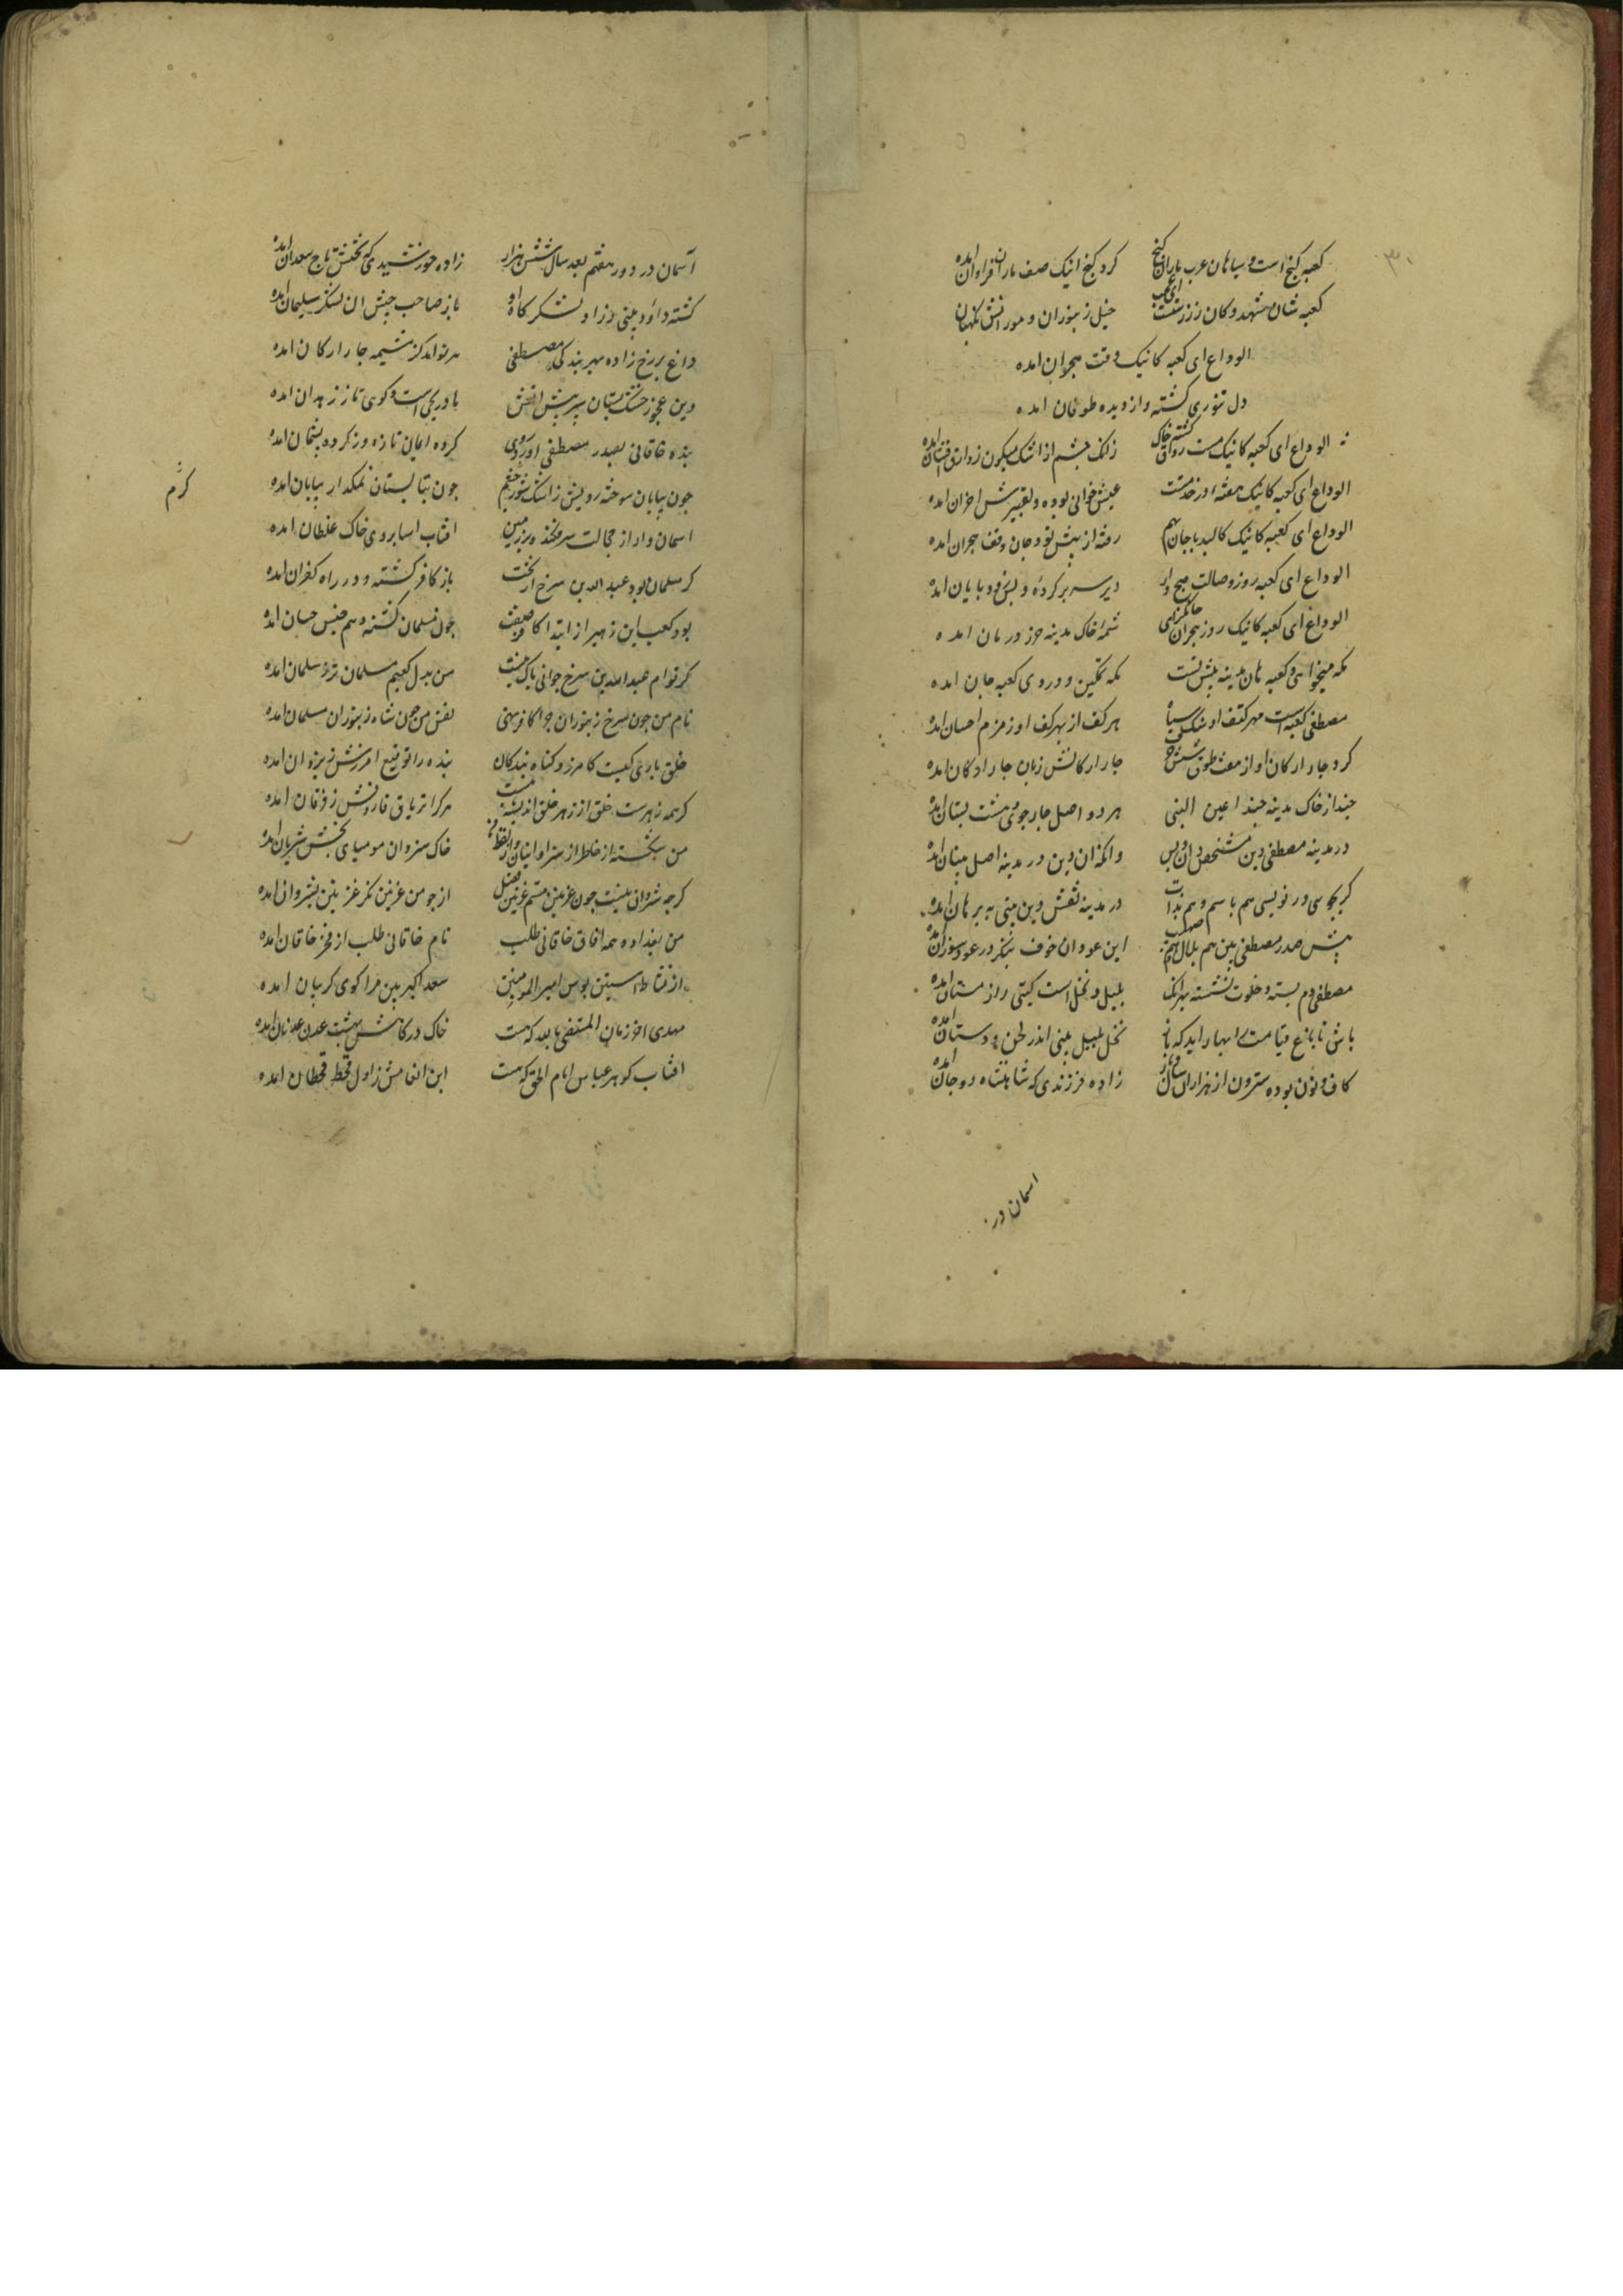 کعبه کنج است و سیاهان عرب ماران کنج کرد کنج اینک صف ماران فراوان امده
کعبه شان شهد و کان زر رستست ای عجب خیل زنبوران و موران نکهبان
الوداع ای کعبه کانیک وقت هجران امده
دل تنوری کشته و از دیده طوفان امده
الوداع ای کعبه کانیک مست راوق کشته خاک زانک چشم از اشک میکون زراوق افشان امده
الوداع ای کعبه کانیک هفته در خدمتت عیش خوابی بوده و تعبیرش احزان امده
الوداع ای کعبه کانیک کالبد با جان بهم رفته از پیش تو و جان وقف هجران امده
الوداع ای کعبه روز وصالت صبح وار دیر سر بر کرده و بس زود بایان امده
الوداع ای کعبه کانیک روز هجران جانکزای شمه خاک مدینه حرز درمان امده
مکه میخواهی و کعبه هان مدینه پیش تست مکه تمکین و در وی کعبه جان امده
مصطفی کعبه است مهر کتف او سنک سیاه هر کف از بهر کف او زمزم احسان امده
کرد جار ارکان او از هفت طوق و شش جار ارکانش زبان جار ارکان امده
حبذا خاک مدینه حبذا عین النبی هر دو اصل جار جوی و هشت بستان امده
در مدینه مصطفی دین مشخص دان و بس وانکه ان دین در مدینه اصل بنیان امده
کر بجوسی ور نویسی هم باسم و هم بذات در مدینه نقش دین بینی به برهان امده
پیش صدر مصطفی بین هم بلال و هم صهیب این عود و ان خوف شکر در عود سوزان امده
مصطفی دم بسته و خلوت نشسته بهر انک بلبل و نحل است کیتی را زمستان امده
باش تا باغ قیامت را بهار اید که باز نحل و بلبل بینی اندر لحن و دستان امده
کاف و نون بوده سترون از هزاران سال باز زاده فرزندی که شاهنشاه دو جهان امده
اسمان در
آسمان در دور هفتم بعد سال شش هزار زاده خورشیدی که تختش تاج سعدان امده
کشته داود نبی زراد لشکر کاه او باز صاحب جیش ان لشکر سلیمان امده
داغ بر رخ زاده بهر بندکی مصطفی هر نواید کز مشیمه جار ارکان امده
وین عجوز خشک بستان بهر بیش امتش مادر یحیی است کوی تازه زهدان امده
بنده خاقانی بصدر مصطفی اورده روی کرده ایمان تازه و ز کرده پشیمان امده
چون بیابان سوخته رویش ز اشک شور چشم چون بتابستان نمکدار بیابان امده
اسمان وار از خجالت سر فکنده بر زمین افتاب اسا بروی خاک غلطان امده
کرم
کر مسلمان بود عبدالله بن سرح از نخست باز کافر کشته و در راه کفران امده
بود کعب ابن زهیر از ابتدا کافر صفت چون مسلمان کشته و هم جنس حسان امده
کر توام عبدالله بن سرح خوانی باک نیست من بدل کعبم مسلمان تر ز سلمان امده
نام من چون سرخ زنبوران چرا کافر نهی نفس من چون شاه زنبوران مسلمان امده
خلق باری کیست کامرزد کناه بندکان بنده را توقیع امرزش ز یزدان امده
کر همه زهرست خلق از زهر خلق اندیشه نیست هر کرا تریاق فاروقش ز فرقان امده
من شکسته خاطر از شروانیان وز لفظ من خاک شروان مومیای بخش شریان امده
کرچه شروان نیست چون غزنین منم غزنین فضل از جو من غزنین نکر غزنین بشروان امده
من ببغداد و همه افاق خاقانی طلب نام خاقانی طلب از فخر خاقان امده
از نشاط استین بوس امیر المومنین سعد اکبر بین مرا کوی کریبان امده
مهدی اخر زمان المقتفی بالله که هست خاک درکاهش بهشت عدن عدنان امده
افتاب کوهر عباس امام الحق که هست ابر انعامش زوال قحط قحطان امده